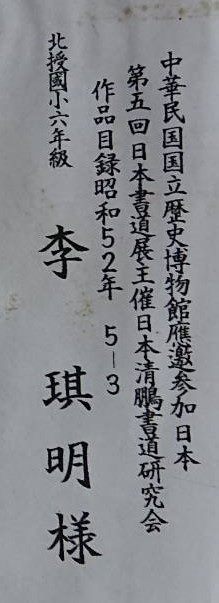 中華民国国立歴史博物館應邀参加日本
第五回日本書道展主催日本清鵬書道研究会
作品目録昭和52年 5-3
北授國小六年級
李琪明様